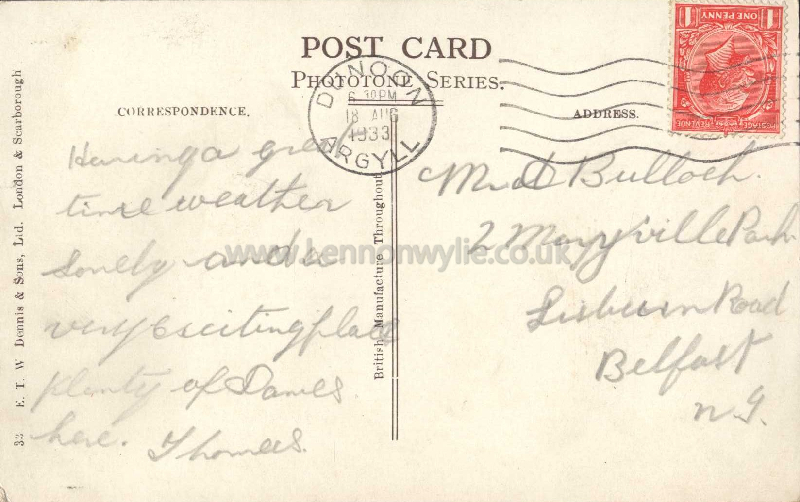 POST CARD
PHOTOTONE SERIES.
CORRESPONDENCE.
ADDRESS.
DUNOON
6 30PM
18 AUG
1933
ARGYLL
ONE PENNY
POSTAGE REVENUE
Having a great
time weather
lovely and a
very exciting place
plenty of Dames
here. Thomas.
Mr A Bulloch.
2 Maryville Park
Lisburn Road
Belfast
N.I.
British Manufacture Throughout
33 E. T. W. Dennis & Sons, Ltd. London & Scarborough
www.lennonwylie.co.uk